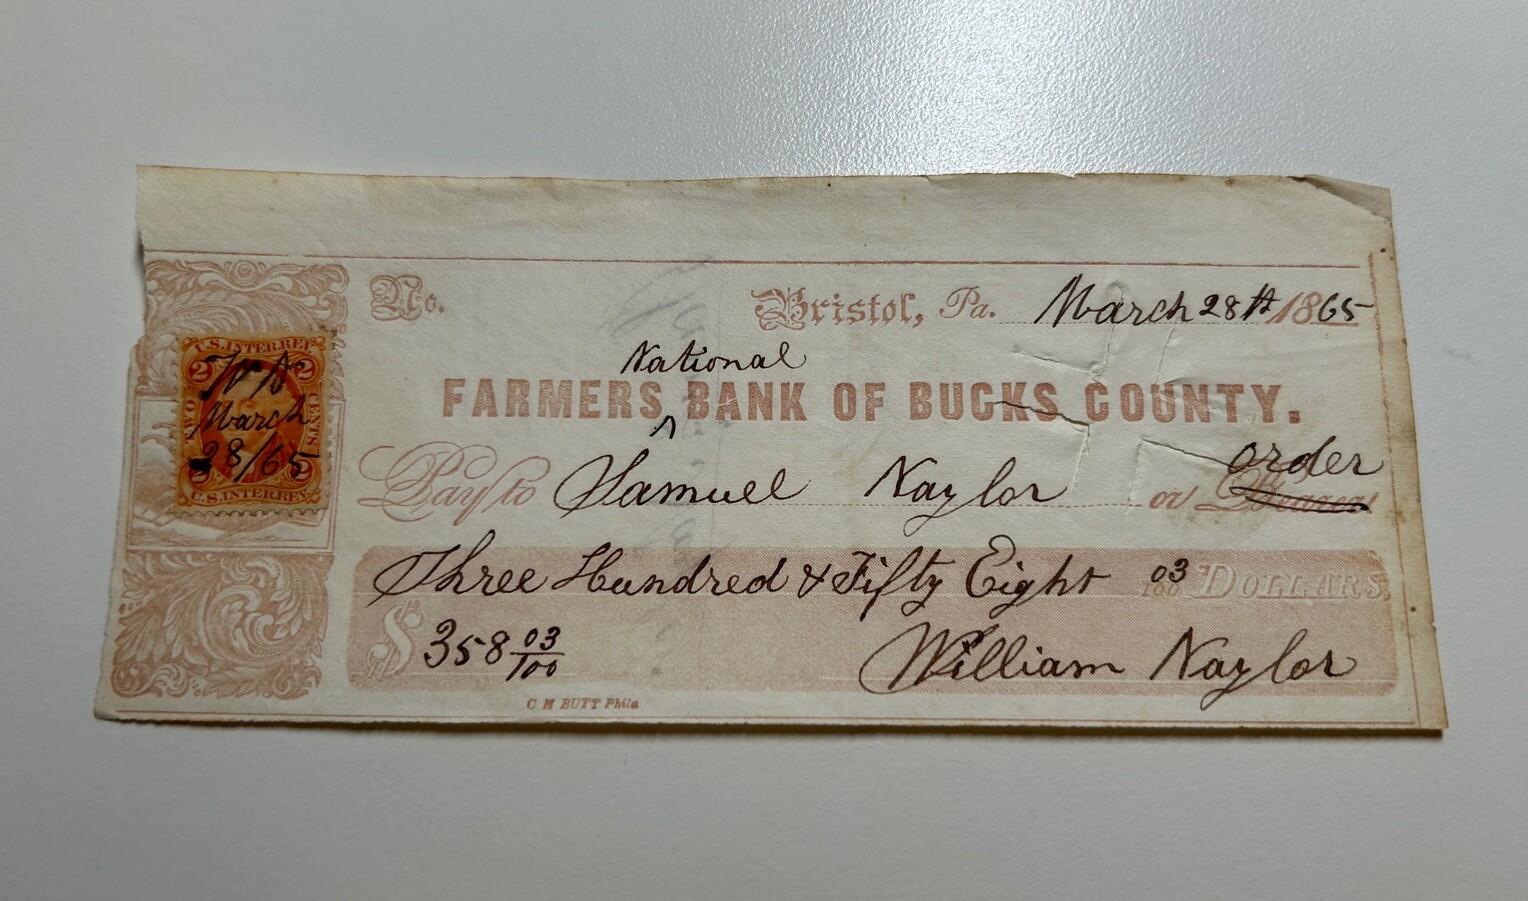 No. Bristol, Pa. March 28th 1865
National
FARMERS ^ BANK OF BUCKS COUNTY.
order
Pay to Samuel Naylor or Bearer
Three Hundred & Fifty Eight 03/100 DOLLARS,
$ 358 03/100 William Naylor
C H BUTT Phila
U.S. INTER. REV.
2 2
W N
TWO March CENTS
28/65
2 2
U.S. INTER. REV.